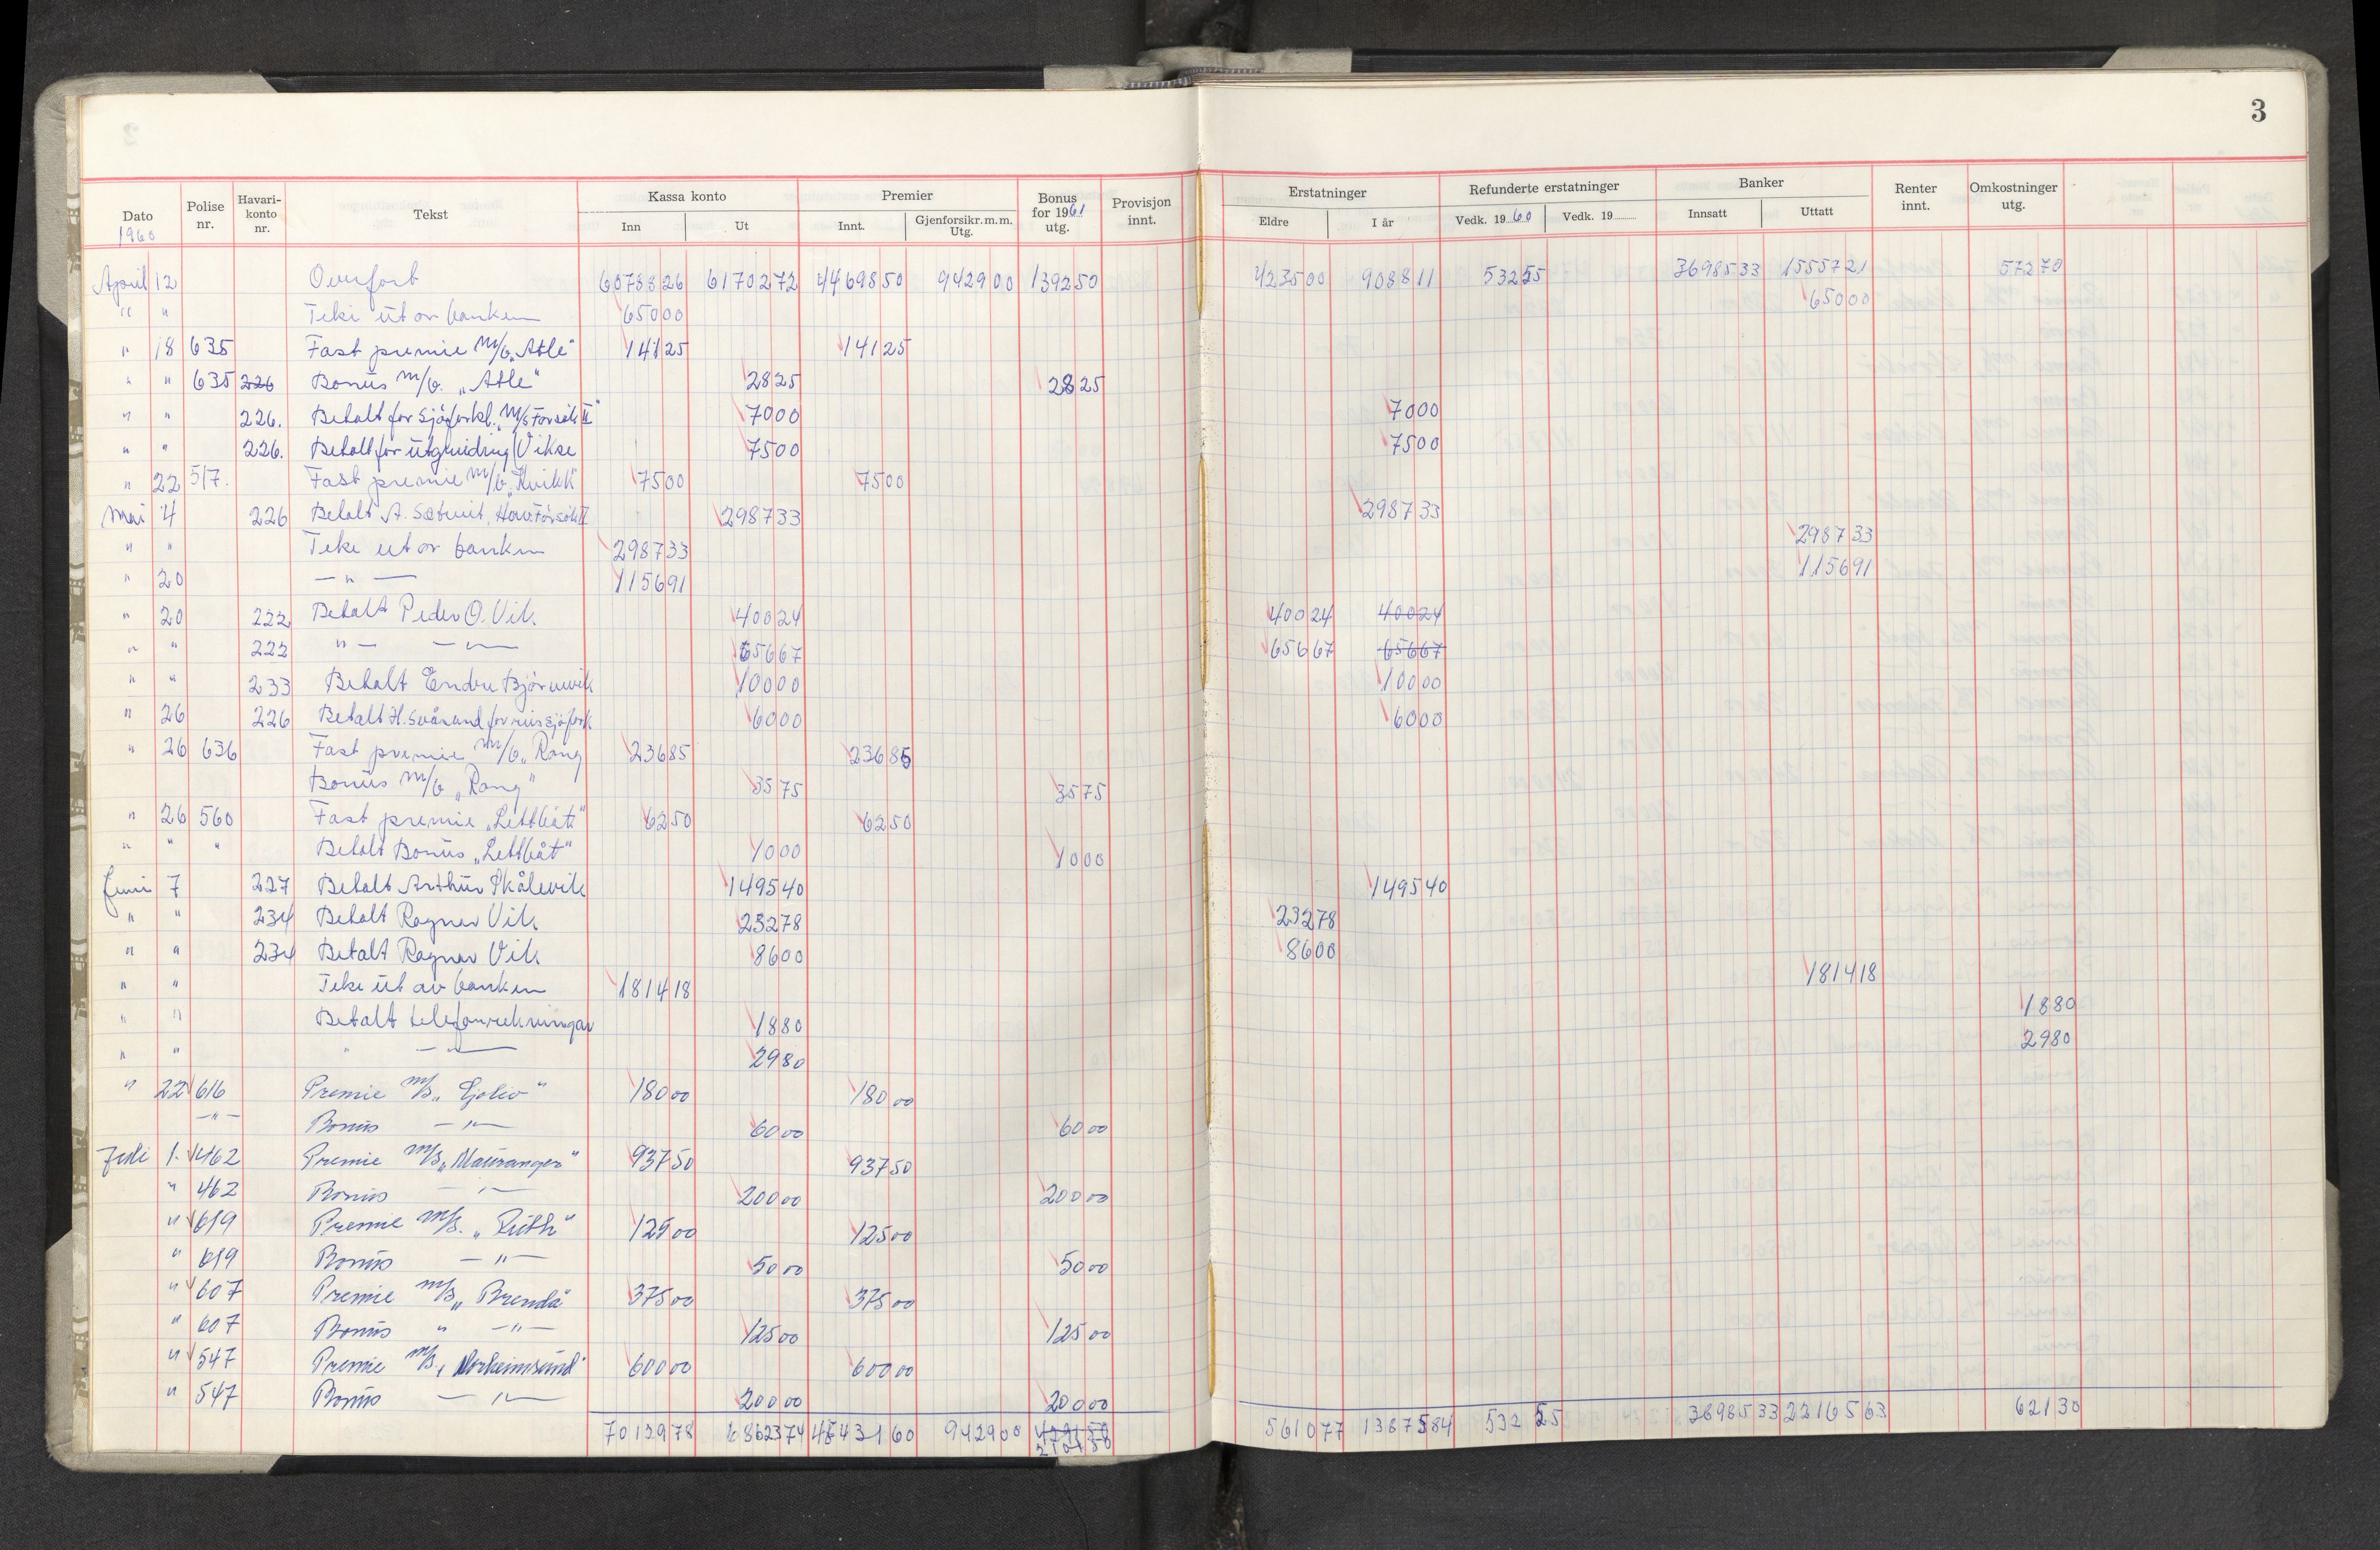 3
Dato 1960 Polise nr. Havari-konto nr. Tekst Kassa konto Inn Ut Premier Innt. Gjenforsikr.m.m. Utg. Bonus for 1961 utg. Provisjon innt. Erstatninger Eldre I år Refunderte erstatninger Vedk. 1960 Vedk. 19 Banker Innsatt Uttatt Renter innt. Omkostninger utg.
April 12 Overført 6078826 6170272 4469850 942900 139250 423500 908811 53255 3698533 1555721 57270
" " Teke ut av banken 65000 65000
" 18 635 Fast premie m/b „Atle" 14125 14125
" " 635 226 Bonus m/b. „Atle" 2825 2825
" " 226. Betalt for sjøforkl. „M/S Forsøk II" 7000 7000
" " 226. Betalt for utgreiding Vikse 7500 7500
" 22 517. Fast premie m/b „Kvikk" 7500 7500
Mai 4 226 Betalt A. Hav. Forsøk II 298733 298733
" " Teke ut av banken 298733 298733
" 20 — " — 115691 115691
" 20 222 Betalt Peder O. Vik. 40024 40024 40024
" " 222 " — — " — 65667 65667 65667
" " 233 Betalt Endre Bjørnevik 10000 10000
" 26 226 Betalt H. Svånand for 6000 6000
" 26 636 Fast premie m/b „Rang 23685 23685
Bonus m/b „Rang" 3575 3575
" 26 560 Fast premie „Lettbåt" 6250 6250
" " " Betalt Bonus „Lettbåt" 1000 1000
Juni 7 227 Betalt Arthur Skålevik 149540 149540
" " 234 Betalt Ragnar Vik. 23278 23278
" " 234 Betalt Ragnar Vik. 8600 8600
" " Teke ut av banken 181418 181418
" " Betalt telefonrekningar 1880 1880
" " " — " — 2980 2980
" 22 616 Premie m/b „ " 18000 18000
— " — Bonus — " — 6000 6000
Juli 1. 462 Premie m/b „Mauranger" 93750 93750
" 462 Bonus — " — 20000 20000
" 619 Premie m/b. „Ruth" 12500 12500
" 619 Bonus — " — 5000 5000
" 607 Premie m/b „Brenda" 37500 37500
" 607 Bonus " — " — 12500 12500
" 547 Premie m/b „Norheimsund" 60000 60000
" 547 Bonus — " — 20000 20000
7012978 6862374 4743160 942900 210150 561077 1387584 53255 3698533 2216563 62130